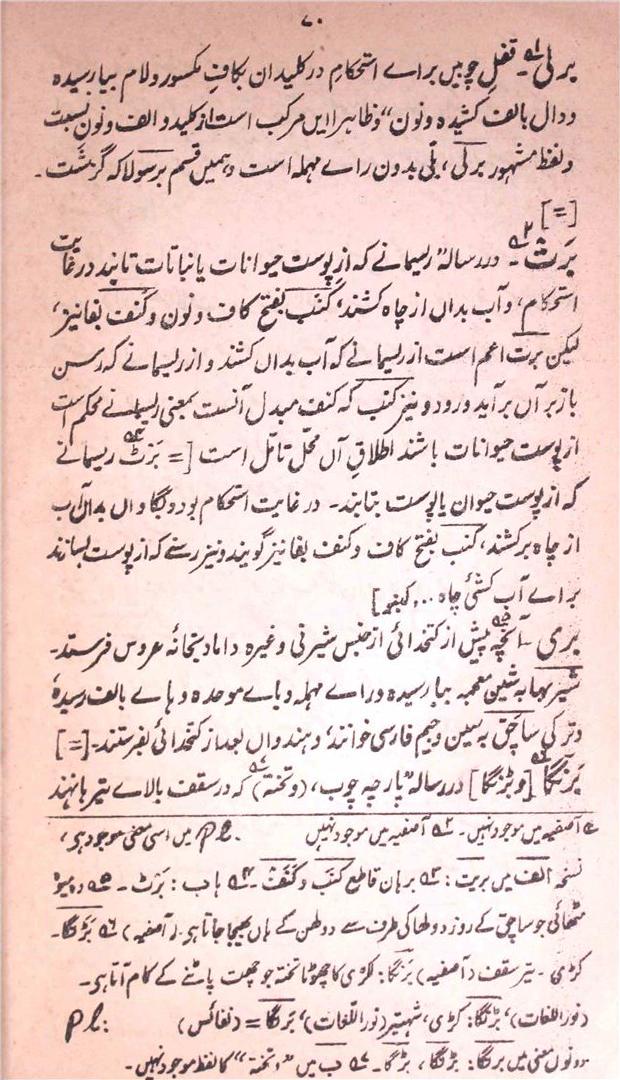 ۷۰
برلی۔ قفلِ چوبیں براے استحکام در کلیدان بکافِ مکسور و لام بیا رسیده
و دال بالف کشیده و نون" و ظاہرا ایں مرکب است از کلید و الف و نونِ نسبت
و لفظ مشہور برلی، بلّی بدون راے مہملہ است و ہمیں قسم بر سولا کہ گزشت۔
[=]
بَرَت۔ در رسالہ" ریسمانے کہ از پوست حیوانات یا نباتات تابند در غایت
استحکام، و آب بداں از چاہ کشند، کنَب بفتح کاف و نون و کنَف بفا نیز،
لیکن برت اعم است از ریسمانے کہ آب بداں کشند و از ریسمانے کہ رسن
باز بر آں برآید و رود و نیز کنب کہ کنف مبدل آنست بمعنی ریسمانے محکم است
از پوست حیوانات باشند اطلاقِ آں محلّ تامّل است [= بَرٹ ریسمانے
کہ از پوست حیوان یا پوست بتابند۔ در غایت استحکام بود و بگاواں بداں آب
از چاہ برکشند، کنب بفتح کاف و کنف بفا نیز گویند و نیز رسنے کہ از پوست بسازند
براے آب کشیِ چاہ ...]
بری۔ آنچہ پیش از کتخدائی از جنس شیرنی و غیرہ داماد بخانۂ عروس فرستد۔
شیر بہا بہ شین معجمہ بیا رسیدہ و راے مہملہ و باے موحدہ و ہاے بالف رسیدہ
و ترکی ساچق بہ سین و جیم فارسی خوانند، و ہندواں بعد از کتخدائی بفرستند۔ [=]
بَرَنگا [و بڑنگا] در رسالہ" پارچہ چوب، (و تختہ) کہ در سقف بالاے تیر ہا نہند
۱ آصفیہ میں موجود نہیں۔ ۲ آصفیہ میں موجود نہیں Pl. میں اسی معنی موجود ہی،
نسخہ الف میں بریت: ۳ برہان قاطع کنَب و کنَف۔ ۴ ب: بَرٹ۔ ۵ دو میوہ
مٹھائی جو ساچق کے روز دولھا کی طرف سے دولھن کے ہاں بھیجا جاتا ہی (آصفیہ) ۶ بَڑنگا۔
کڑی۔ تیر سقف (آصفیہ) بَرنگا: لکڑی کا چھوٹا تختہ جو چھت پاٹنے کے کام آتا ہی۔
(نور اللغات)، بڑنگا: کڑی، شہتیر (نور اللغات)، بَرنگا = (نفائس) Pl.:
دونوں معنی میں برنگا: بڑنگا، بڑگا۔ ۷ ب میں "و تختہ" کا لفظ موجود نہیں۔